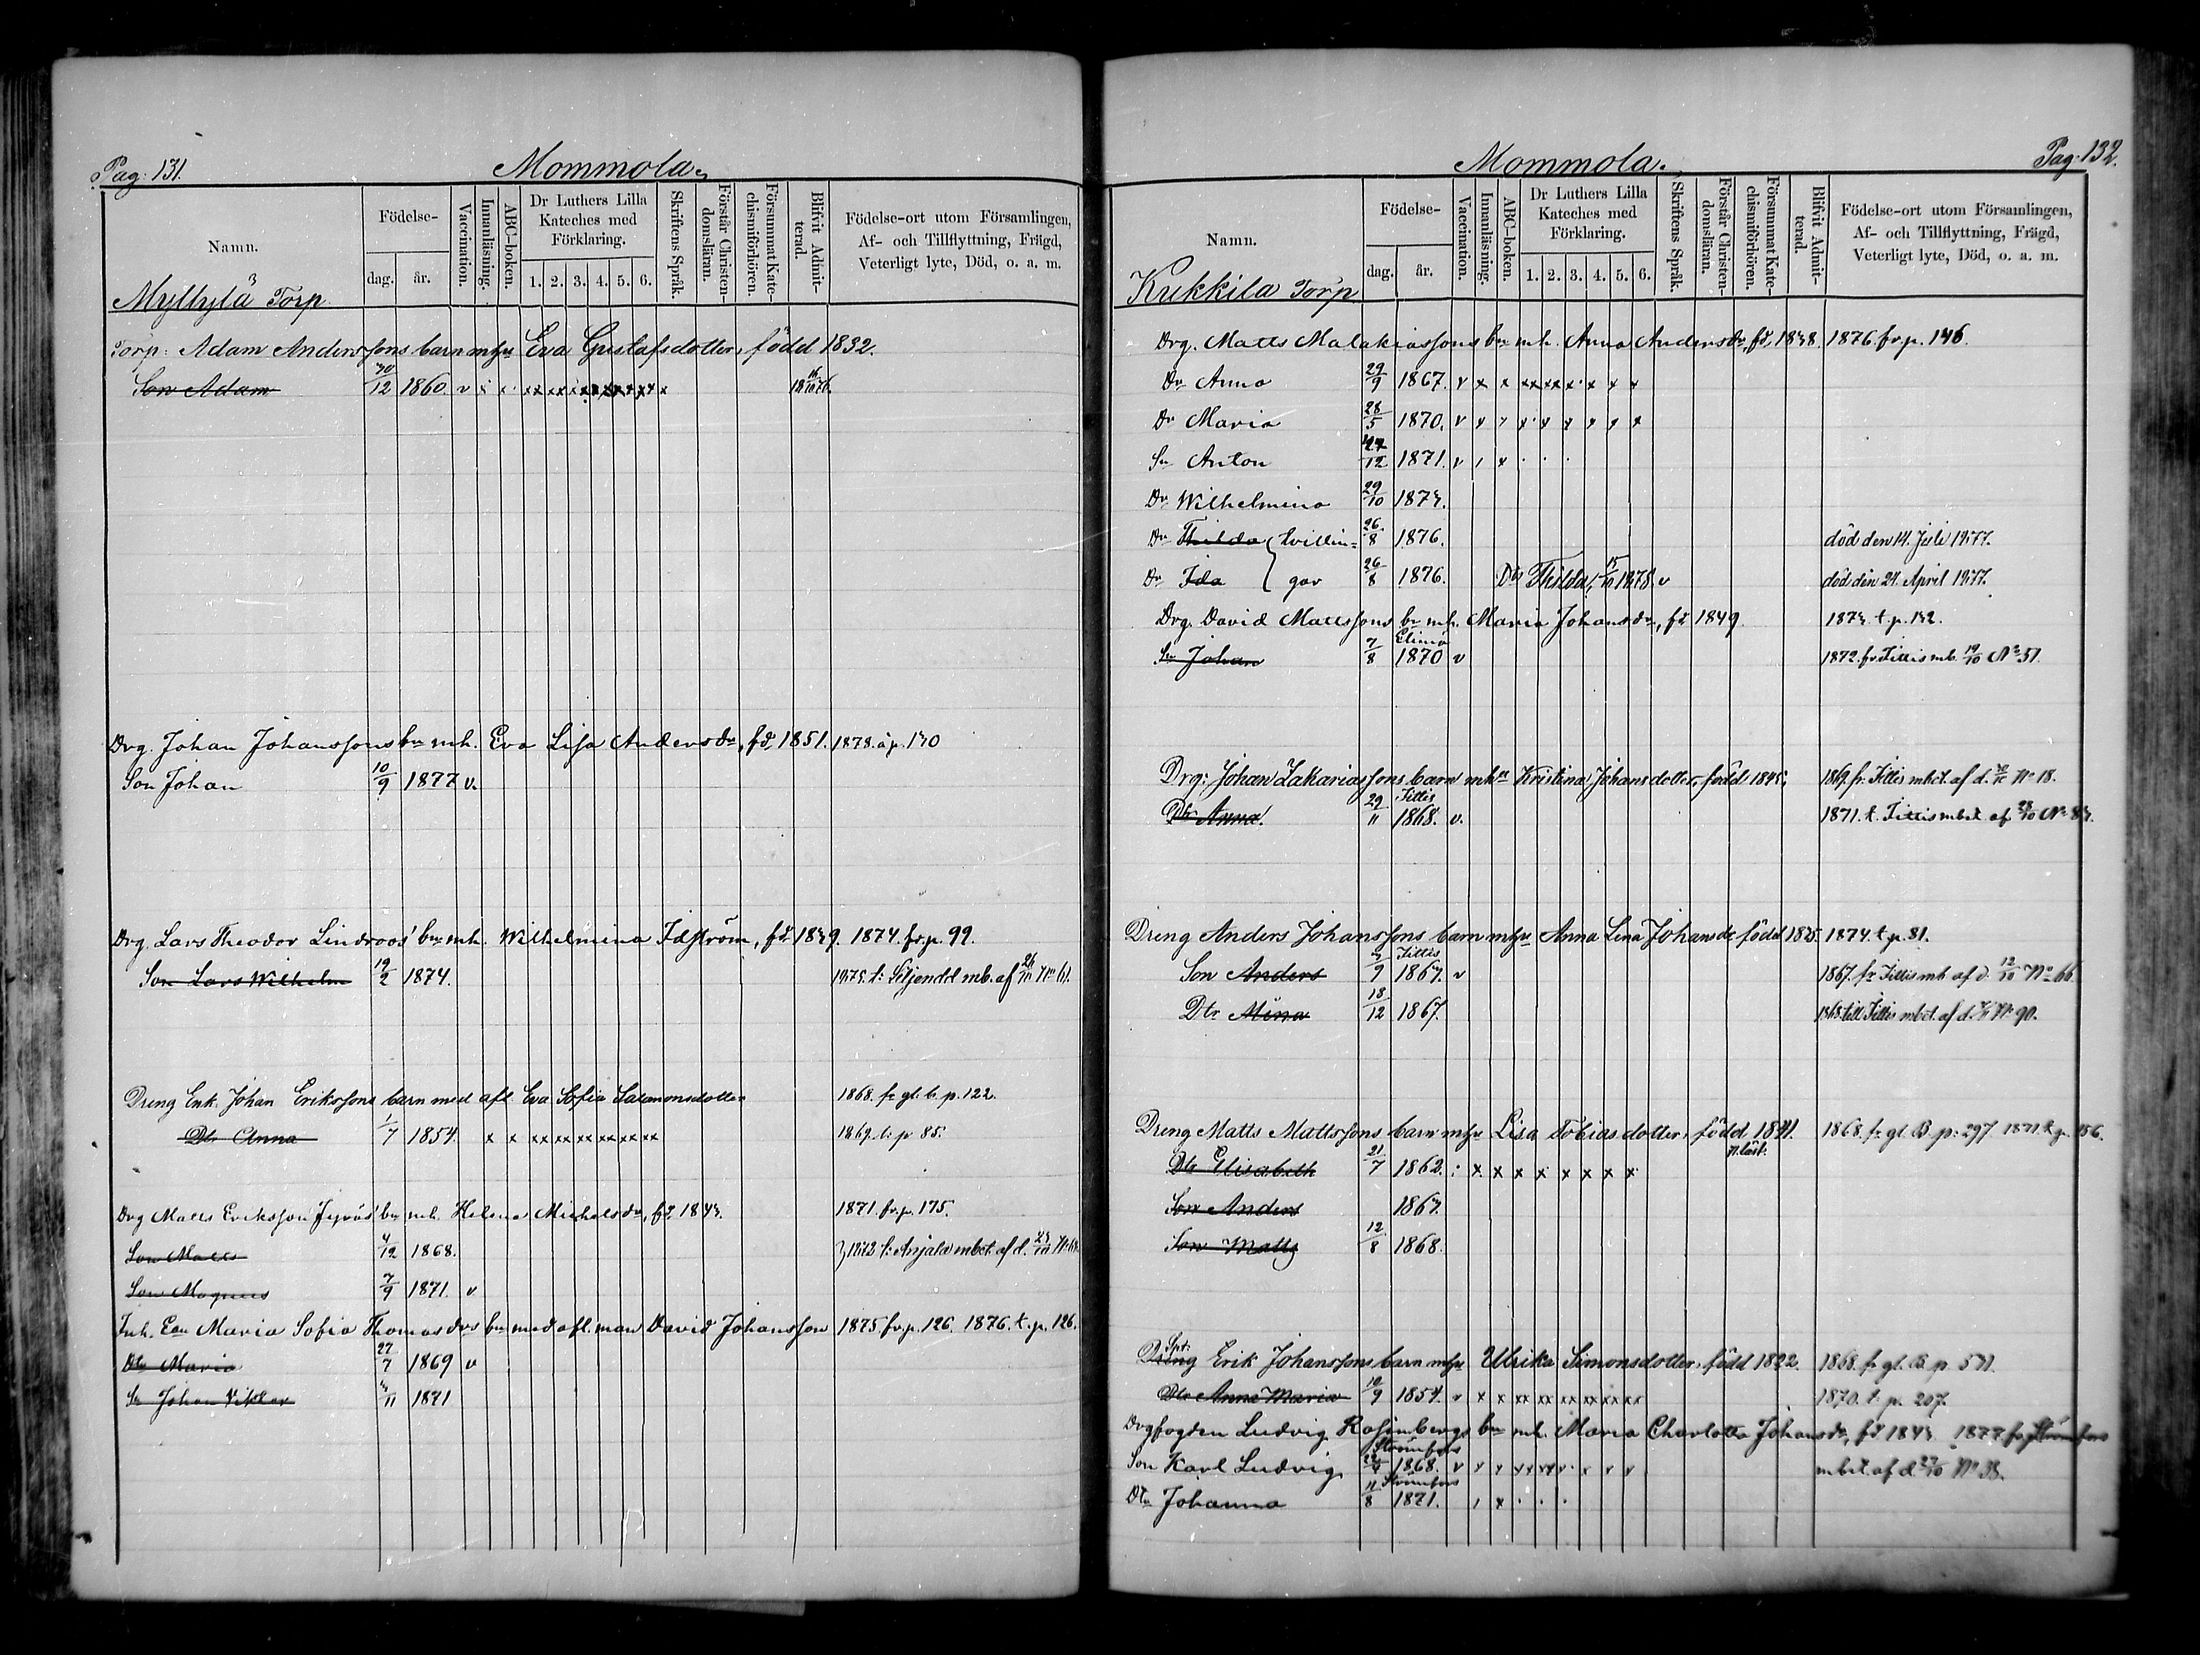 Pag: 131.
Mommola.
Namn.
Födelse-
dag.
år.
Vaccination.
Innanläsning.
ABC-boken.
Dr Luthers Lilla
Kateches med
Förklaring.
1. 2. 3. 4. 5. 6.
Skriftens Språk.
Förstår Christen-
domsläran.
Försummat Kate-
chismiförhören.
Blifvit Admit-
terad.
Födelse-ort utom Församlingen,
Af- och Tillflyttning, Frägd,
Veterligt lyte, Död, o. a. m.
Myllylä Torp
Torp: Adam Anderssons barn m hu Eva Gustafsdotter, född 1832.
Son Adam 30/12 1860. v
Drg. Johan Johanssons bn m h. Eva Lisa Andersdr, fd 1851. 1878. å p. 130
Son Johan 10/9 1877 v.
Drg. Lars Theodor Lindroos' bn m h. Wilhelmina Idström, fd 1849. 1874. fr. p. 99.
Son Lars Wilhelm 19/2 1874.
Dreng Enk. Johan Erikssons barn med afl Eva Sofia Salomonsdotter 1868. fr gl. b. p. 122.
Dtr Anna 1/7 1854. x x xx xx xx xx xx xx 1869. t. p 85.
Drg Matts Eriksson bn m h. Helena Michelsdr, fd 1843. 1871. fr. p. 175.
Son Matts 4/12 1868. 1872 t. Anjala mbet. af d.
Son Magnus 7/9 1871. v
Inh. Enk Maria Sofia Thomasdrs bn med afl. man David Johansson 1875. fr. p. 126. 1876. t. p. 126.
Dtr Maria 27/7 1869 v
Sn Johan Viktor 3/11 1871
Pag: 132.
Mommola.
Namn.
Födelse-
dag.
år.
Vaccination.
Innanläsning.
ABC-boken.
Dr Luthers Lilla
Kateches med
Förklaring.
1. 2. 3. 4. 5. 6.
Skriftens Språk.
Förstår Christen-
domsläran.
Försummat Kate-
chismiförhören.
Blifvit Admit-
terad.
Födelse-ort utom Församlingen,
Af- och Tillflyttning, Frägd,
Veterligt lyte, Död, o. a. m.
Kukkila Torp
Drg. Matts Malakiassons bn m h. Anna Andersdr, fd 1838. 1876. fr. p. 146.
Dr Anna 29/9 1867. v x x xx xx x x x x
Dr Maria 28/5 1870. v x x x x x x x x
Sn Anton 27/12 1871. v
Dr Wilhelmina 29/10 1873.
Dr Thilda tvillin= 26/8 1876. död den 14. Juli 1877.
Dr Ida gar 26/8 1876. Dtr Thilda, 1878. v död den 24. April 1877.
Drg. David Mattssons bn m h. Maria Johansdr, fd 1849. 1873. t. p. 132.
Elimä
Sn Johan 7/8 1870 v 1872. fr Tittis mb. 19/10 No 51.
Drg: Johan Zakariassons barn m hu Kristina Johansdotter, född 1845. 1869. fr. Tittis mbet. af d. No 18.
Tittis
Dtr Anna. 29/11 1868. v. 1871. t. Tittis mbet. af 28/10 No 83.
Dreng Anders Johanssons barn m hu Anna Lena Johansdr född 1825. 1874. t. p. 81.
Tittis
Son Anders 3/9 1863. v 1867. fr Tittis mb af d. 12/10 No 66.
Dtr Mina 18/12 1867. 1868. till Tittis mbet. af d. No 90.
Dreng Matts Mattssons barn m hu Lisa Tobiasdotter, född 1841. 1868. fr gl. B. p. 297 1871. t. p. 156.
Dtr Elisabeth 21/7 1862. x x x x x x x x
Son Anders 1863.
Son Matts 12/8 1868.
Dreng Erik Johanssons barn m hu Ulrika Simonsdotter, född 1822. 1868. fr gl. B. p. 571.
Dtr Anna Maria 10/9 1854. v x x xx xx xx xx xx xx 1870. t. p. 207.
Drgfogden Ludvig Rosenbergs bn m h. Maria Charlotta Johansdr, fd 1843. 1877. fr Strömfors
Strömfors
Son Karl Ludvig 1868. v mbet. af d. 27/10 No 38.
Strömfors
Dtr Johanna 11/8 1871.